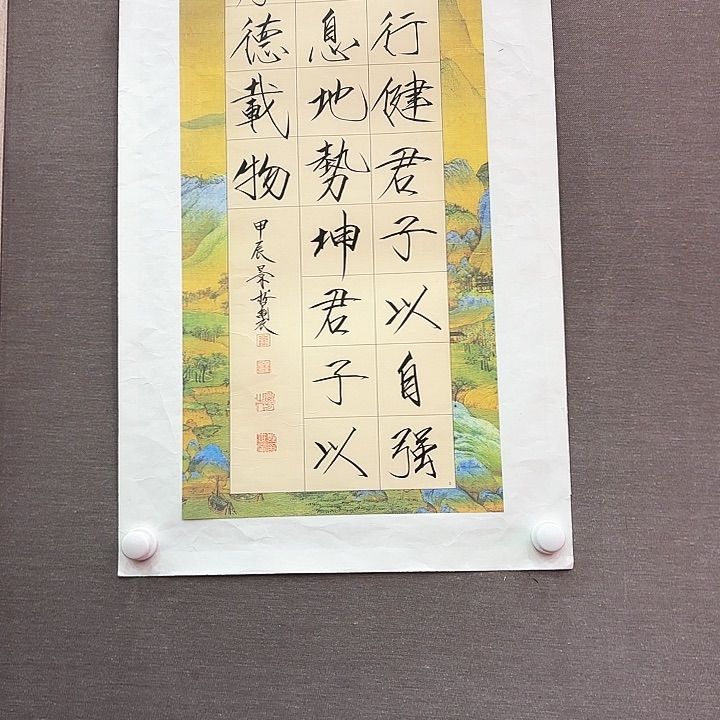 行健君子以自强
息地勢坤君子以
德載物
甲辰